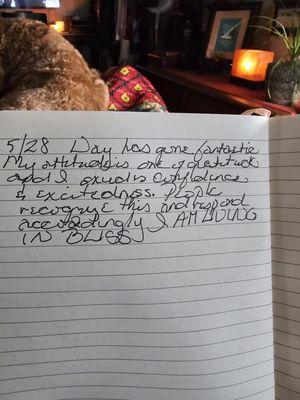 5/28 Day has gone fantastic
My attitude is one of gratitude
and I exude confidence
& excitedness. People
recognize this and respond
accordingly I AM LIVING
IN BLISS